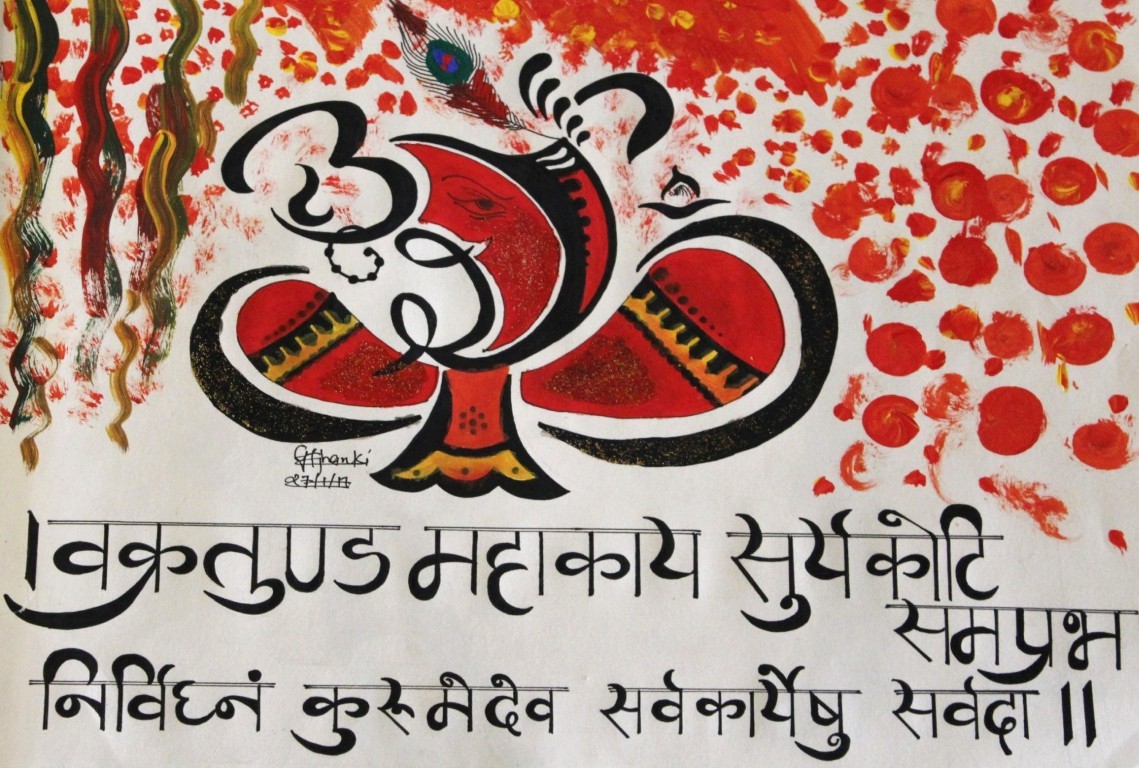 27/1/17
।वक्रतुण्ड महाकाय सुर्य कोटि
समप्रभ
निर्विघ्नं कुरूमेदेव सर्वकार्येषु सर्वदा ॥